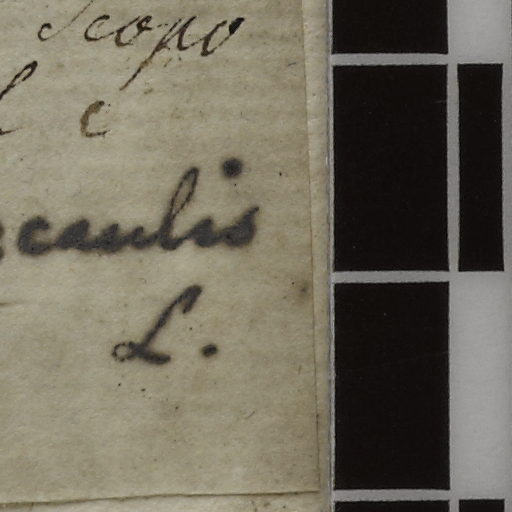 Scopo
l c
caulis
L.